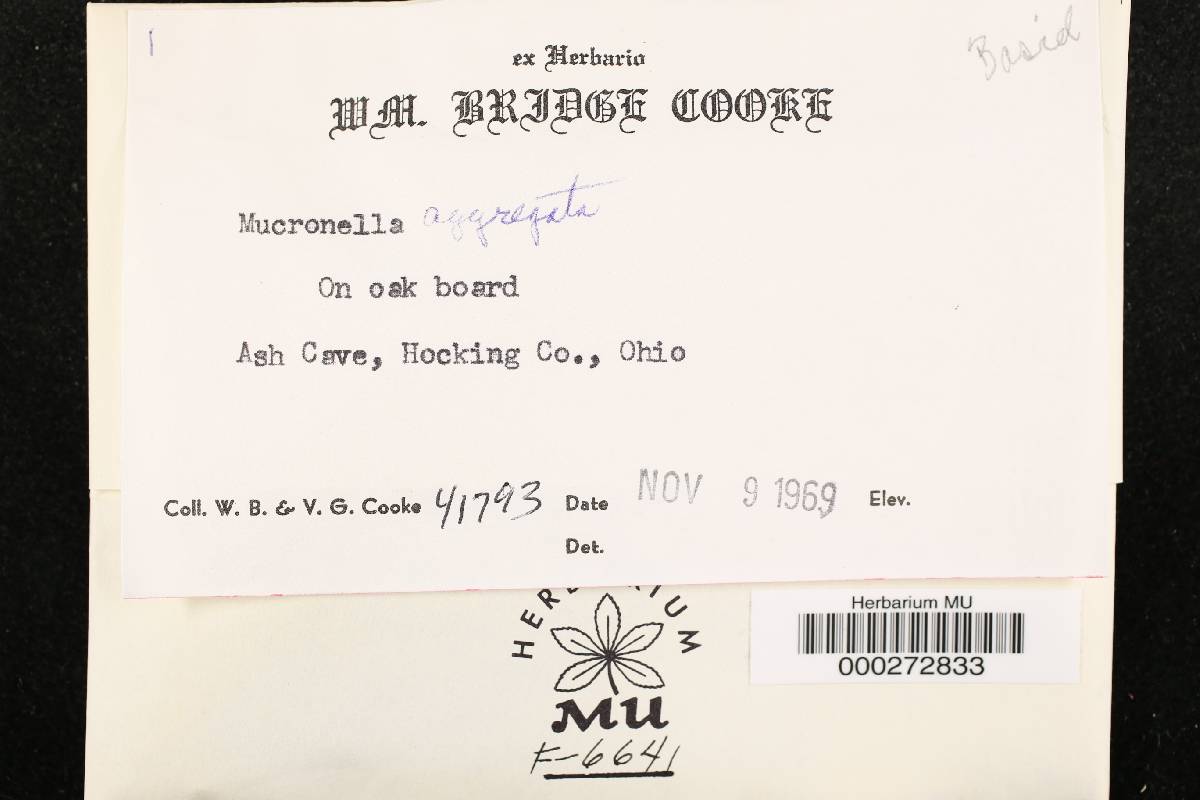 Basid
ex Herbario
WM. BRIDGE COOKE
Mucronella aggregata
On oak board
Ash Cave, Hocking Co., Ohio
Coll. W. B. & V. G. Cooke 41793 Date NOV 9 1969 Elev.
Det.
HERBARIUM
MU
F-6641
Herbarium MU
000272833